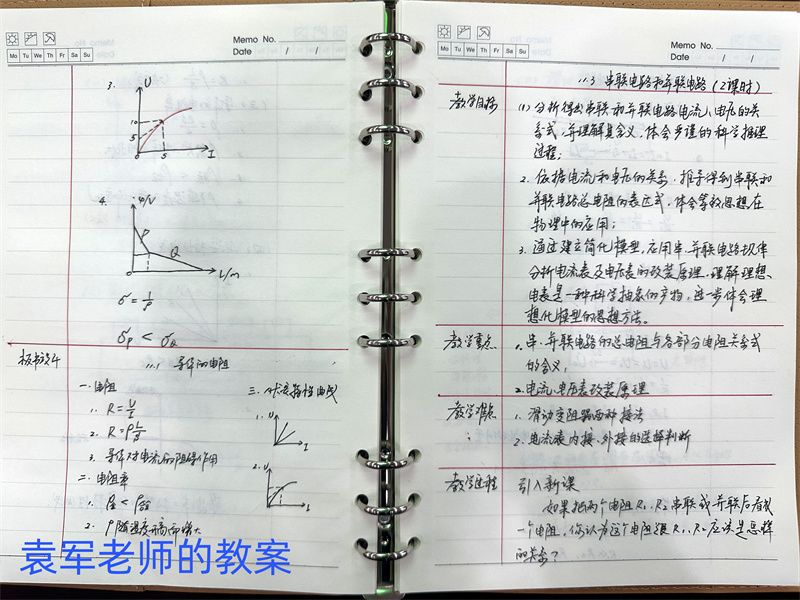 Memo No.
Mo Tu We Th Fr Sa Su
Date / /
3.
U
10
5
0 5 I
4.
φ/V
P
Q
L/m
σ = 1/ρ
σP < σQ
板书设计
11.1 导体的电阻
一. 电阻
1. R = U/I
2. R = ρL/S
3. 导体对电流的阻碍作用
二. 电阻率
2. ρ随温度升高而增大
三. 伏安特性曲线
1. U
I
2. U
I
袁军老师的教案
Memo No.
Mo Tu We Th Fr Sa Su
Date / /
11.3 串联电路和并联电路(2课时)
教学目标
(1) 分析得出串联和并联电路电流、电压的关
系式,并理解其含义,体会严谨的科学推理
过程;
2. 依据电流和电压的关系,推导得到串联和
并联电路总电阻的表达式,体会等效思想在
物理中的应用;
3. 通过建立简化模型,应用串、并联电路规律
分析电流表及电压表的改装原理,理解理想
电表是一种科学抽象的产物,进一步体会理
想化模型的思想方法。
教学重点
1. 串、并联电路的总电阻与各部分电阻关系式
的含义;
2. 电流、电压表改装原理
教学难点
1. 滑动变阻器两种接法
2. 电流表内接、外接的选择判断
教学过程
引入新课
如果把两个电阻R₁、R₂串联或并联后看成
一个电阻,你认为这个电阻跟R₁、R₂应该是怎样
的关系?